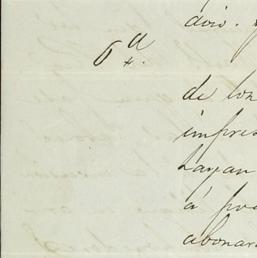 dois.
6ª
de los
impres
hayan
á po
abonar